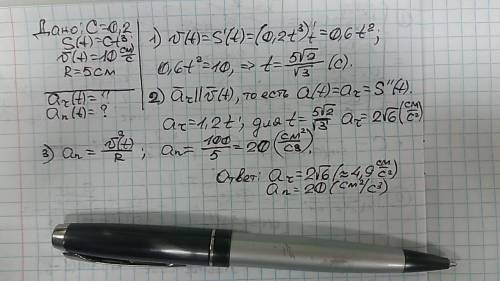 Дано: C=0,2
S(t)=Ct³
v(t)=10 см/с
R=5см
aτ(t)=?
an(t)=?
1) v(t)=S'(t)=(0,2t³)'t=0,6t²;
0,6t²=10, => t=5√2/√3 (с).
2) aτ||v(t), то есть a(t)=aτ=S''(t).
aτ=1,2t; для t=5√2/√3 aτ=2√6(см/с²)
3) an=v²(t)/R; an=100/5=20(см²/с³).
Ответ: aτ=2√6(≈4,9 см/с²)
an=20(см²/с³)